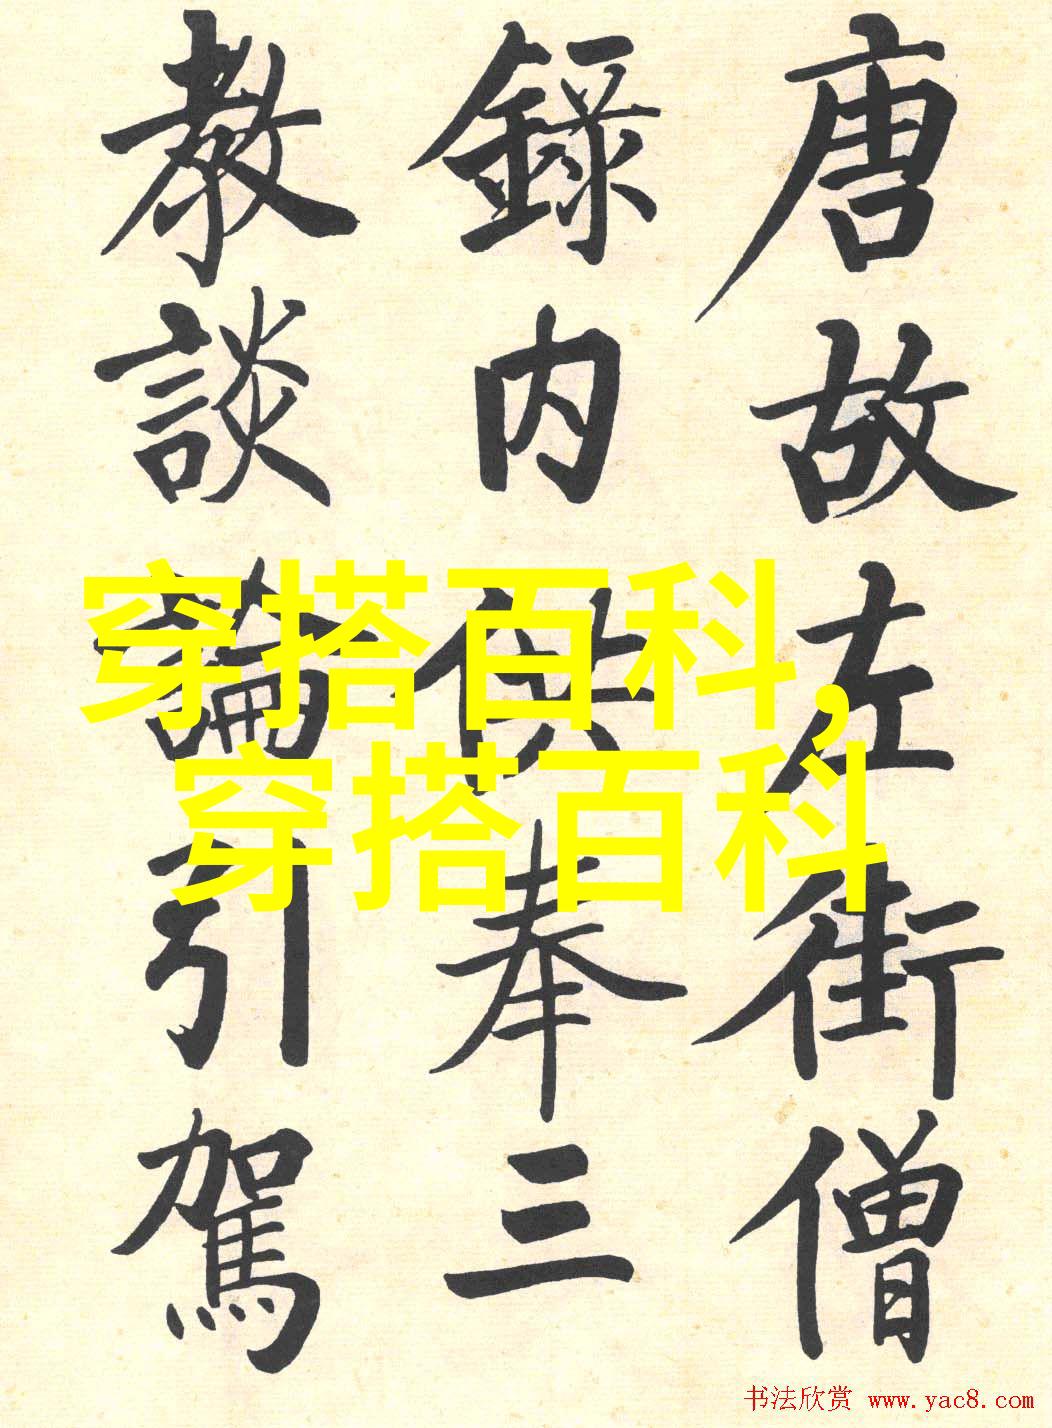 唐故左街僧
録内供奉三
教談論引駕
穿搭百科,
穿搭百科
书法欣赏 www.yac8.com